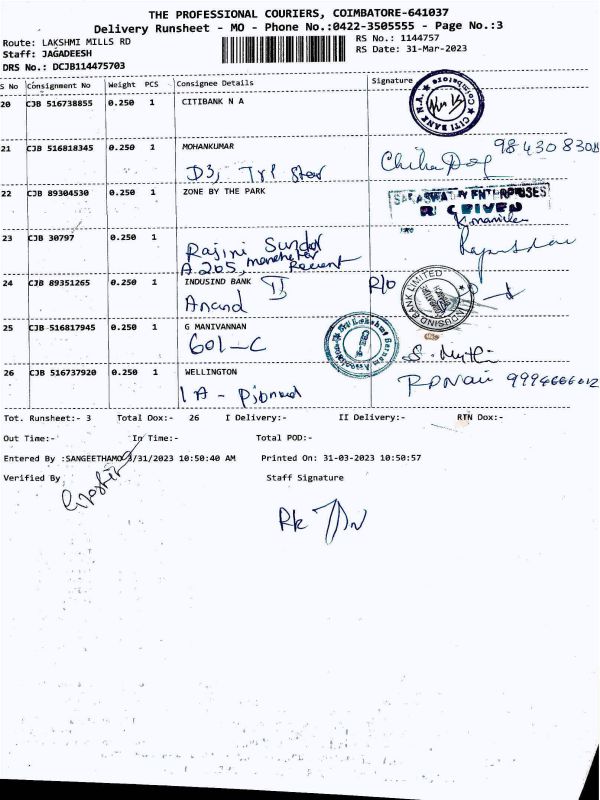 THE PROFESSIONAL COURIERS, COIMBATORE-641037
Delivery Runsheet - MO - Phone No.:0422-3505555 - Page No.:3
Route: LAKSHMI MILLS RD
RS No.: 1144757
Staff: JAGADEESH
RS Date: 31-Mar-2023
DRS No.: DCJB114475703
S No Consignment No Weight PCS Consignee Details Signature
20 CJB 516738855 0.250 1 CITIBANK N A
CITI BANK N.A. Coimbatore
21 CJB 516818345 0.250 1 MOHANKUMAR
D3,
22 CJB 89304530 0.250 1 ZONE BY THE PARK
SARASWATHY ENTERPRISES
RECEIVED
23 CJB 30797 0.250 1
Rajini Sundar
A 205, manchester
Recient
24 CJB 89351265 0.250 1 INDUSIND BANK
Anand
R/o
INDUSIND BANK LIMITED
25 CJB 516817945 0.250 1 G MANIVANNAN
601-C
26 CJB 516737920 0.250 1 WELLINGTON
1A -
Tot. Runsheet:- 3 Total Dox:- 26 I Delivery:- II Delivery:- RTN Dox:-
Out Time:- In Time:- Total POD:-
Entered By :SANGEETHAMO 3/31/2023 10:50:40 AM Printed On: 31-03-2023 10:50:57
Verified By Staff Signature